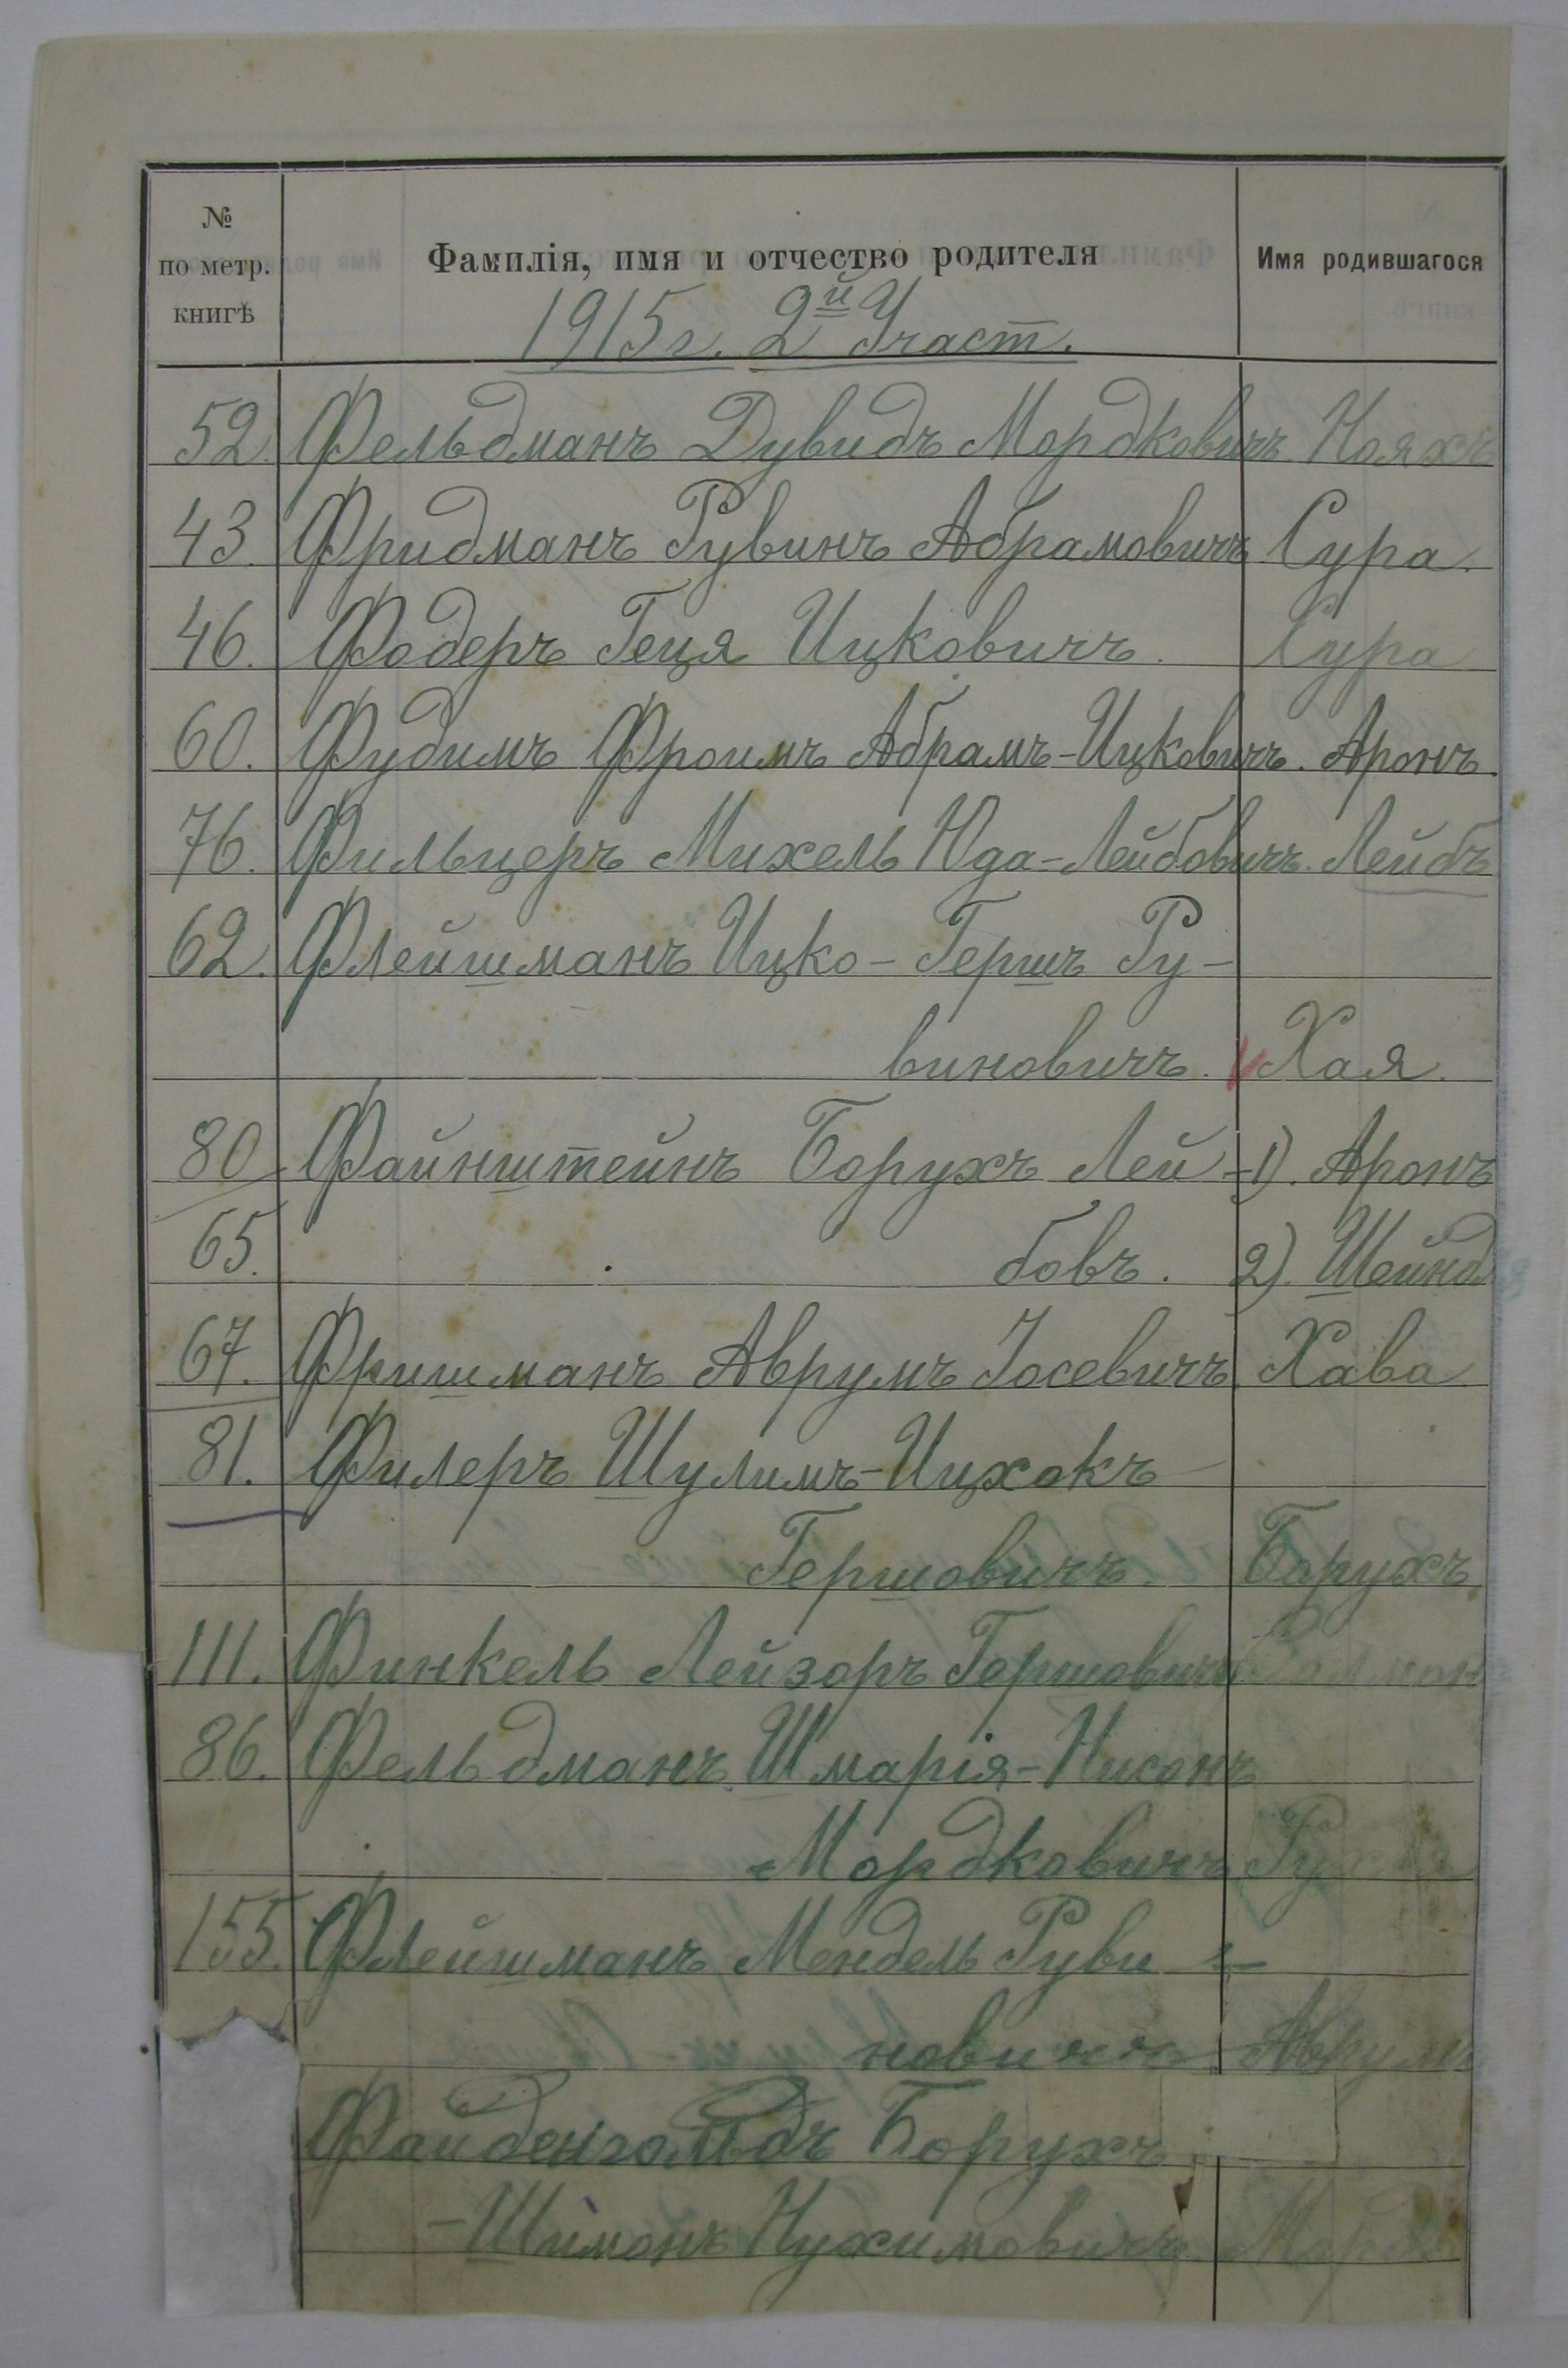 № по метр. книгѣ | Фамилія, имя и отчество родителя | Имя родившагося
1915г. 2й Участ.
52. Фельдманъ Дувидъ Мордковичъ Нояхъ
43. Фридманъ Рувинъ Абрамовичъ Сура.
46. Фодеръ Геця Ицковичъ. Сура
60. Фудимъ Фроимъ Абрамъ-Ицковичъ. Аронъ.
76. Фильцеръ Михель Юда-Лейбовичъ. Лейбъ
62. Флейшманъ Ицко-Гершъ Ру-
виновичъ. Хая.
80 Файнштейнъ Борухъ Лей- 1). Аронъ
65. бовъ. 2). Шейнд
67. Фришманъ Аврумъ Іосевичъ. Хава
81. Филеръ Шулимъ-Ицхокъ
Гершовичъ. Борухъ.
111. Финкель Лейзоръ Гершовичъ
86. Фельдманъ Шмарія-Нисонъ
Мордковичъ
155. Флейшманъ Мендель Руви-
новичъ Аврумъ
Файденгольдъ Борухъ
-Шимонъ Нухимовичъ